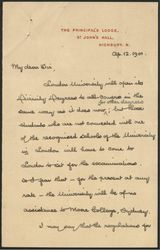 THE PRINCIPAL'S LODGE,
ST JOHN'S HALL,
HIGHBURY, N.
Ap. 12. 1901.
My dear Sir
London University will open its
Divinity Degrees to all-comers in the
same way as it does now, its other degrees but those
students who are not connected with one
of the recognised schools of the University
in London will have to come to
London to sit for the examinations
so I fear that - for the present at any
rate - the University will be of no
assistance to Moore College, Sydney.
I may say that the regulations for